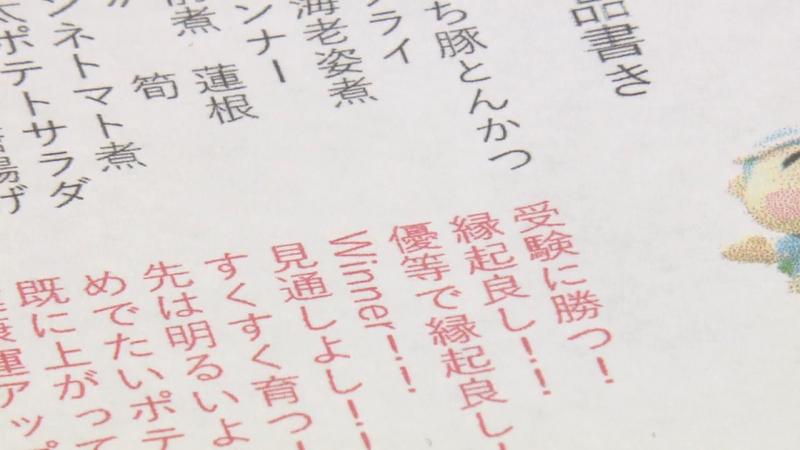 品書き
ち豚とんかつ
フライ
海老姿煮
ンナー
煮 蓮根
筍
ンネトマト煮
ポテトサラダ
揚げ
受験に勝つ!
縁起良し!!
優等で縁起良し!
Winner!!
見通しよし!!
すくすく育つ!
先は明るいよ
めでたいポテ
既に上がって
運アップ